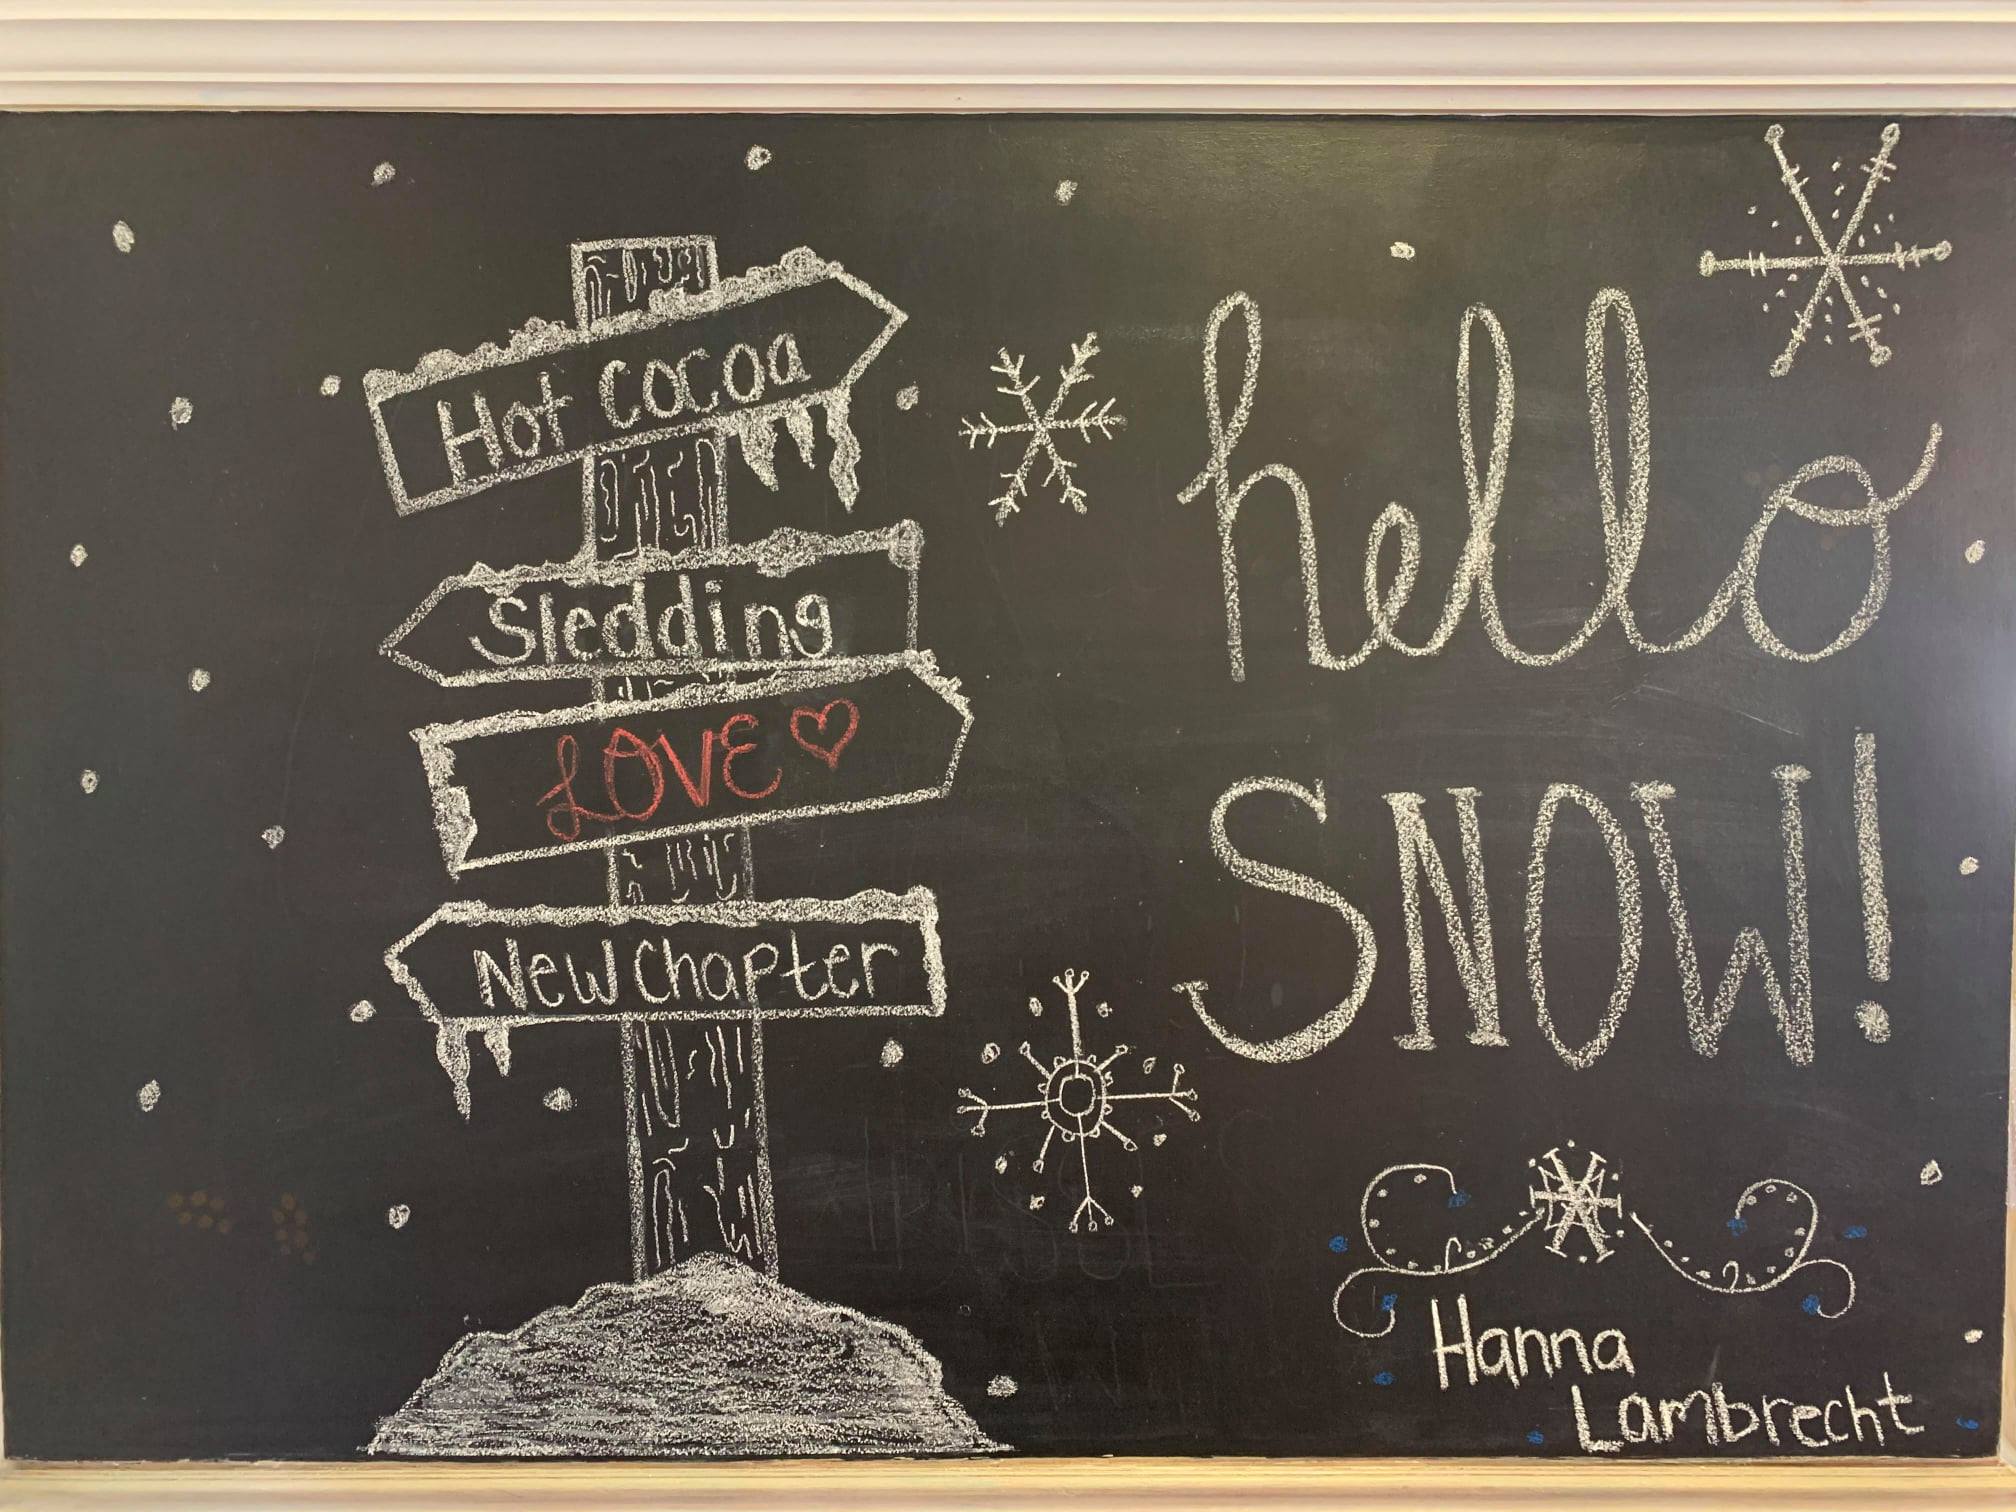 Hot cocoa
Sledding
LOVE
New Chapter
hello
SNOW!
Hanna
Lambrecht